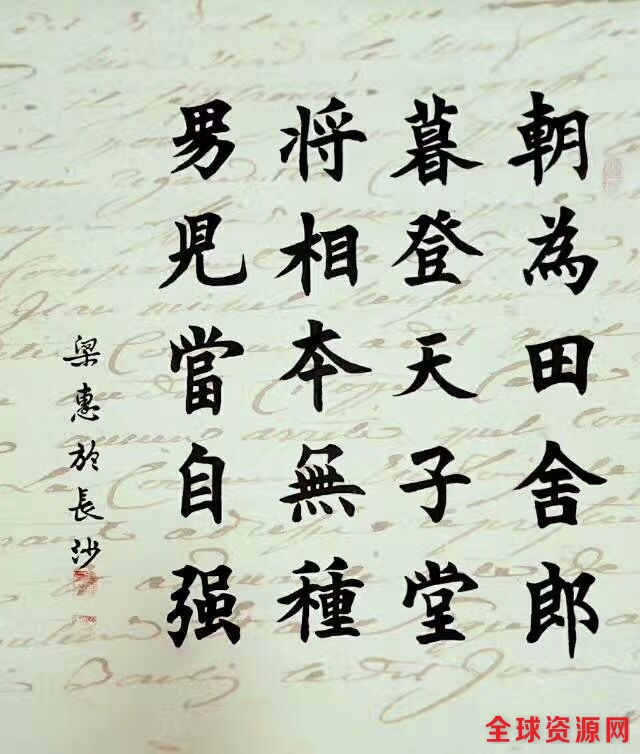 朝為田舍郎
暮登天子堂
将相本無種
男児當自强
梁惠於長沙
全球资源网